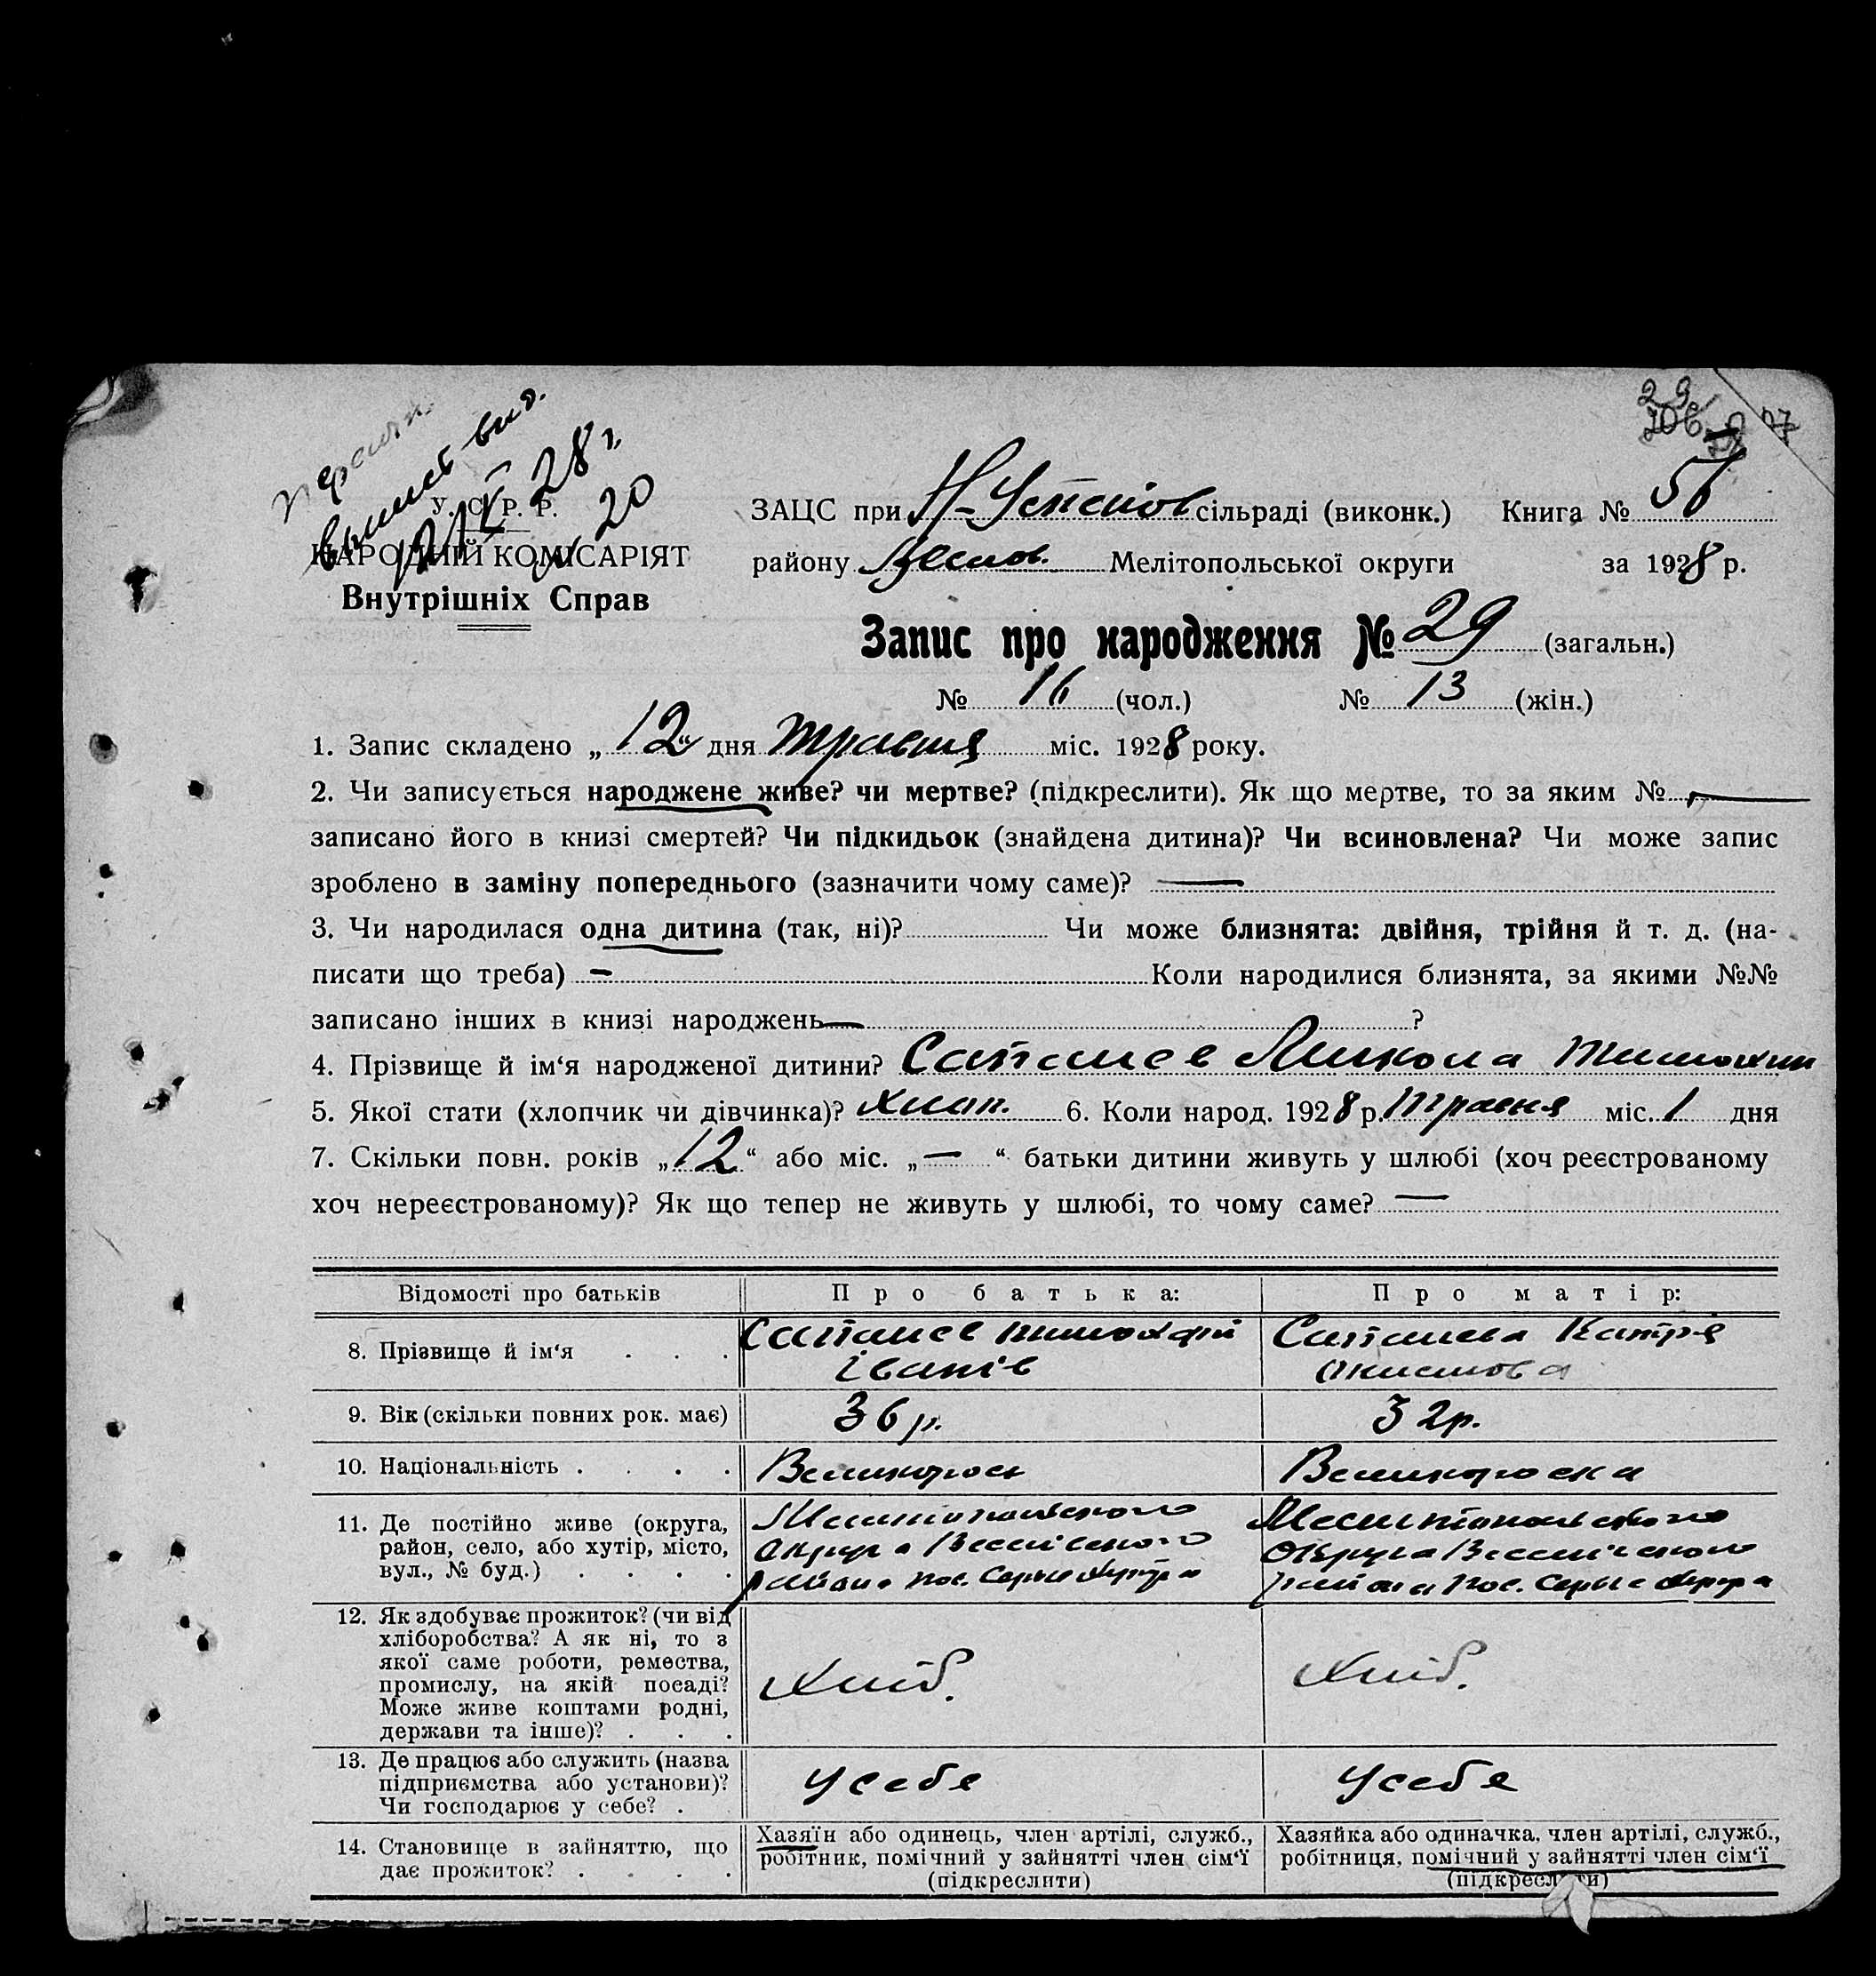 29
випись вид.
12/V 28 г.
№ 20
У. С. Р. Р.
НАРОДНІЙ КОМІСАРІЯТ
Внутрішніх Справ
ЗАЦС при Н-Успенів сільраді (виконк.) Книга № 56
району Весел. Мелітопольської округи за 1928 р.
Запис про народження № 29 (загальн.)
№ 16 (чол.) № 13 (жін.)
1. Запис складено „12“ дня травня міс. 1928 року.
2. Чи записується народжене живе? чи мертве? (підкреслити). Як що мертве, то за яким № —
записано його в книзі смертей? Чи підкидьок (знайдена дитина)? Чи всиновлена? Чи може запис
зроблено в заміну попереднього (зазначити чому саме)? —
3. Чи народилася одна дитина (так, ні)? Чи може близнята: двійня, трійня й т. д. (на-
писати що треба) — Коли народилися близнята, за якими №№
записано інших в книзі народжень — ?
4. Прізвище й ім‘я народженої дитини? Микола
5. Якої стати (хлопчик чи дівчинка)? хлоп. 6. Коли народ. 1928 р. травня міс. 1 дня
7. Скільки повн. років „12“ або міс. „—“ батьки дитини живуть у шлюбі (хоч реєстрованому
хоч нереєстрованому)? Як що тепер не живуть у шлюбі, то чому саме? —
Відомості про батьків Про батька: Про матір:
8. Прізвище й ім‘я . . . Тимофій Катря
Іванів
9. Вік (скільки повних рок. має) 36 р. 32 р.
10. Національність . . . . Великорос Великороска
11. Де постійно живе (округа, Мелитопольского Мелитопольского
район, село, або хутір, місто, округа Веселівского округа Веселівского
вул., № буд.) . . . . района пос. Серые хутора района пос. Серые хутора
12. Як здобуває прожиток? (чи від
хліборобства? А як ні, то з
якої саме роботи, ремества,
промислу, на якій посаді? Хліб. Хліб.
Може живе коштами родні,
держави та інше)? . . .
13. Де працює або служить (назва
підприємства або установи)? У себе У себе
Чи господарює у себе? .
14. Становище в зайняттю, що Хазяїн або одинець, член артілі, служб., Хазяйка або одиначка, член артілі, служб.,
дає прожиток? . . . . робітник, помічний у зайнятті член сім‘ї робітниця, помічний у зайнятті член сім‘ї
(підкреслити) (підкреслити)